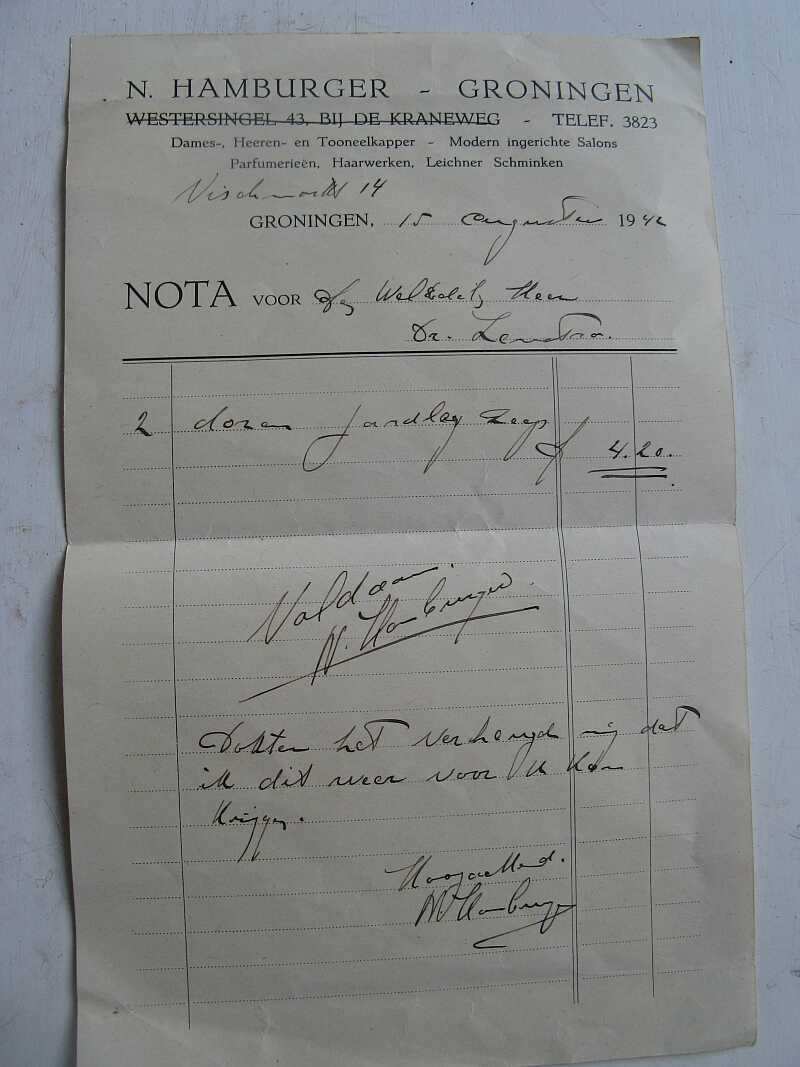 N. HAMBURGER - GRONINGEN
WESTERSINGEL 43, BIJ DE KRANEWEG - TELEF. 3823
Dames-, Heeren- en Tooneelkapper - Modern ingerichte Salons
Parfumerieën, Haarwerken, Leichner Schminken
Vischmarkt 14
GRONINGEN, 15 Augustus 194
NOTA VOOR Heer
Dr. Lenstra.
2 dozen Jardley Zeep
f 4.20.
Voldaan.
N. Hamburger.
Dokter het verheugd mij dat
ik dit weer voor U kon
krijgen.
Hoogachtend.
N Hamburger